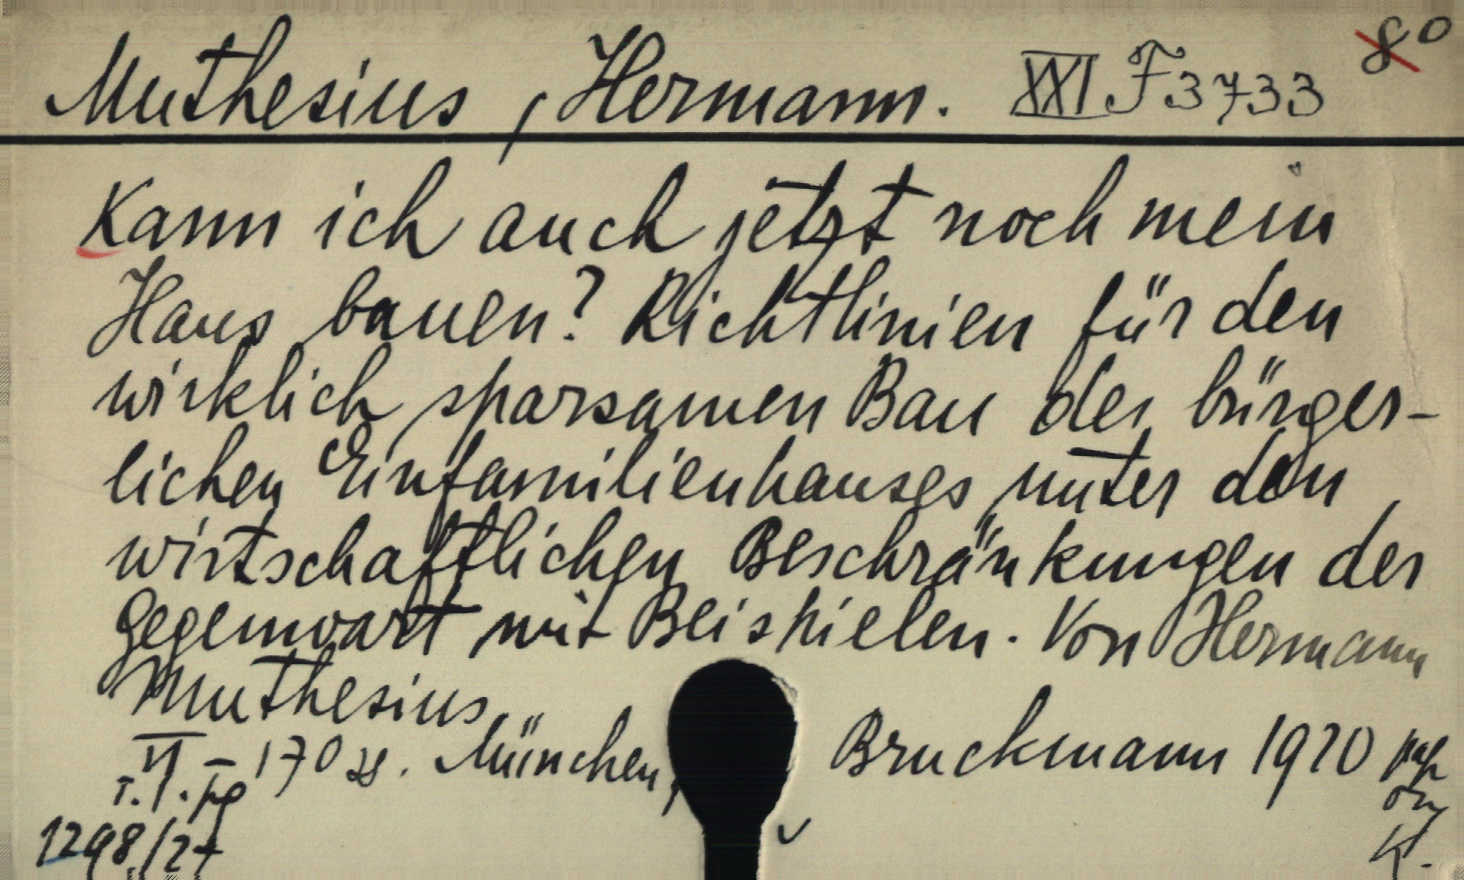 Muthesius, Hermann. XXI F3733 8°
Kann ich auch jetzt noch mein
Haus bauen? Richtlinien für den
wirklich sparsamen Bau des bürger-
lichen Einfamilienhauses unter den
wirtschaftlichen Beschränkungen der
Gegenwart mit Beispielen. Von Hermann
Muthesius
VI - 170 München, Bruckmann 1920
1298/27 K.